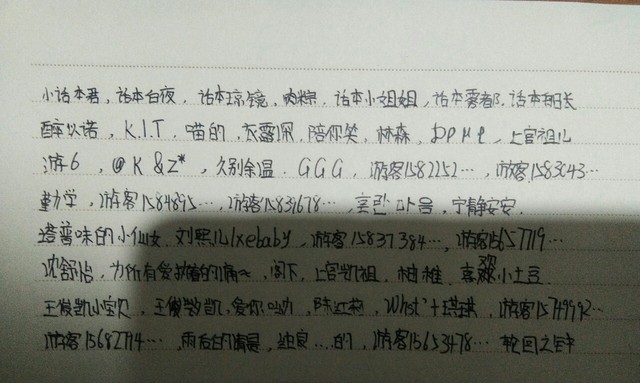 小话本君，话本白夜，话本琼镜，肉粽，话本小姐姐，话本雾都，话本班长
醉以诺，K.I.T，喵的，衣露深，陪你笑，林森，上官祖儿
游6，@K&Z*，久别余温，GGG，游客1582252…，游客1583043…
勤学，游客1584895…，游客15831678…，宁静安安，
澄普味的小仙女，刘熙儿lxebaby，游客15837384…，游客15657719…
沈舒怡，为所有爱执着的痛~，阁下，上官凯祖，柚稚，喜欢小土豆
王俊凯小宝贝，王俊凯，爱你，陈红莉，游客15719992…
游客15682714…，雨后的情景，的，游客15653478…，轮回之钟